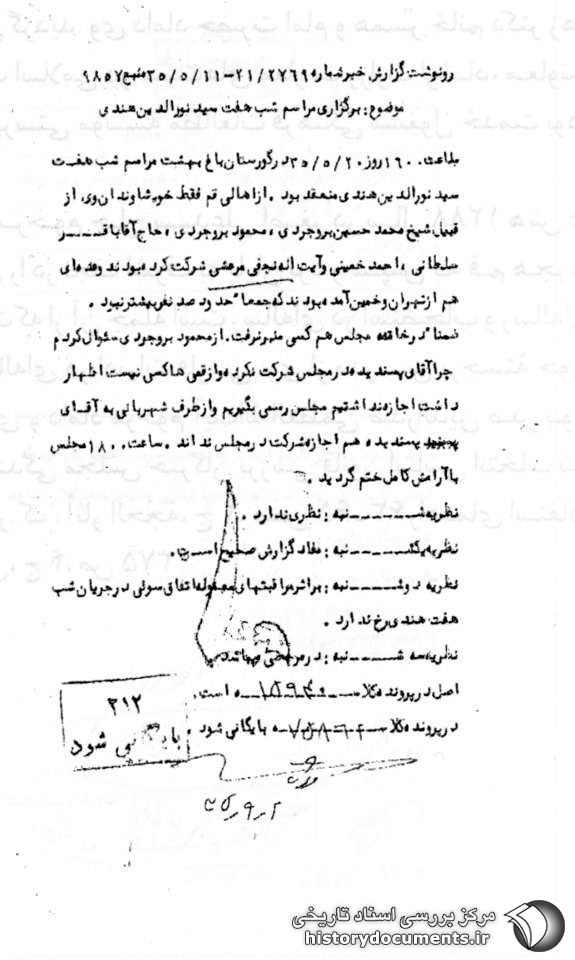 رونوشت گزارش خبر شماره ۲۲۶۹/۲۱-۱۱/۵/۳۵ منبع ۹۸۵۷
موضوع: برگزاری مراسم شب هفت سید نورالدین هندی
ساعت ۱۶۰۰ روز ۲۰/۵/۳۵ در گورستان باغ بهشت مراسم شب هفت
سید نورالدین هندی منعقد بود . از اهالی قم فقط خوشاوندان وی از
قبیل شیخ محمد حسین بروجردی ، محمود بروجردی ، حاج آقا باقر
سلطانی ، احمد خمینی وآیت اله نجفی مرعشی شرکت کرده بودند وعده‌ای
هم از تهران وخمین آمده بودند که جمعا" حدود صد نفر بیشتر نبود .
ضمنا" در خاتمه مجلس هم کسی منبر نرفت . از محمود بروجودی سئوال کردم
چرا آقای پسندیده در مجلس شرکت نکرده واز قمی ها کسی نیست اظهار
داشت اجازه نداشتیم مجلس رسمی بگیریم واز طرف شهربانی به آقای
پسندیده هم اجازه شرکت در مجلس نداند . ساعت ۱۸۰۰ مجلس
با آرامش کامل ختم گردید .
نظریه شـــنبه : نظری ندارد .
نظریه یکشـــنبه : مفاد گزارش صحیح است .
نظریه دوشـــنبه : بر اثر مراقبتهای معموله اتفاق سوئی در جریان شب
هفت هندی رخ نداد .
نظریه سه شـــنبه : در مرخصی میباشد
اصل در پرونده کلاسه است .
در پرونده کلاسه بایگانی شود .
۲۱۲
بایگانی شود
مرکز بررسی اسناد تاریخی
historydocuments.ir